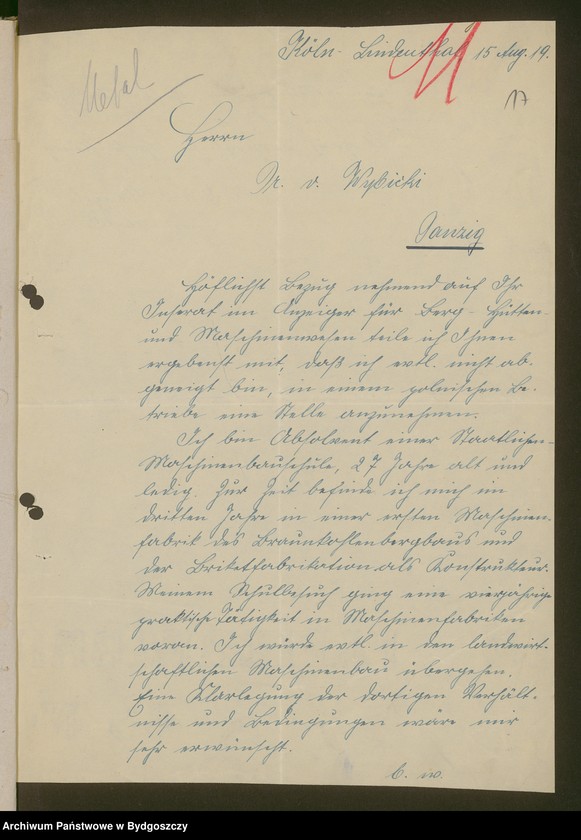 Köln-Lindenthal 15 Aug. 19.
17
Herrn
v. Wybicki
Danzig
Höflichst Bezug nehmend auf Ihr
Inserat im Anzeiger für Berg- Hütten-
und Maschinenwesen teile ich Ihnen
ergebenst mit, daß ich evtl. nicht ab-
geneigt bin, in einem polnischen Be-
triebe eine Stelle anzunehmen.
Ich bin Absolvent einer Staatlichen-
Maschinenbauschule, 27 Jahre alt und
ledig. Zur Zeit befinde ich mich im
dritten Jahre in einer ersten Maschinen-
fabrik des Braunkohlenbergbaus und
der Briketfabrikation als Konstrukteur.
Meinem Schulbesuch ging eine vierjährige
praktische Tätigkeit in Maschinenfabriken
voran. Ich würde evtl. in den landwirt-
schaftlichen Maschinenbau übergehen.
Eine Klarlegung der dortigen Verhält-
nisse und Bedingungen wäre mir
sehr erwünscht.
b. w.
Archiwum Państwowe w Bydgoszczy